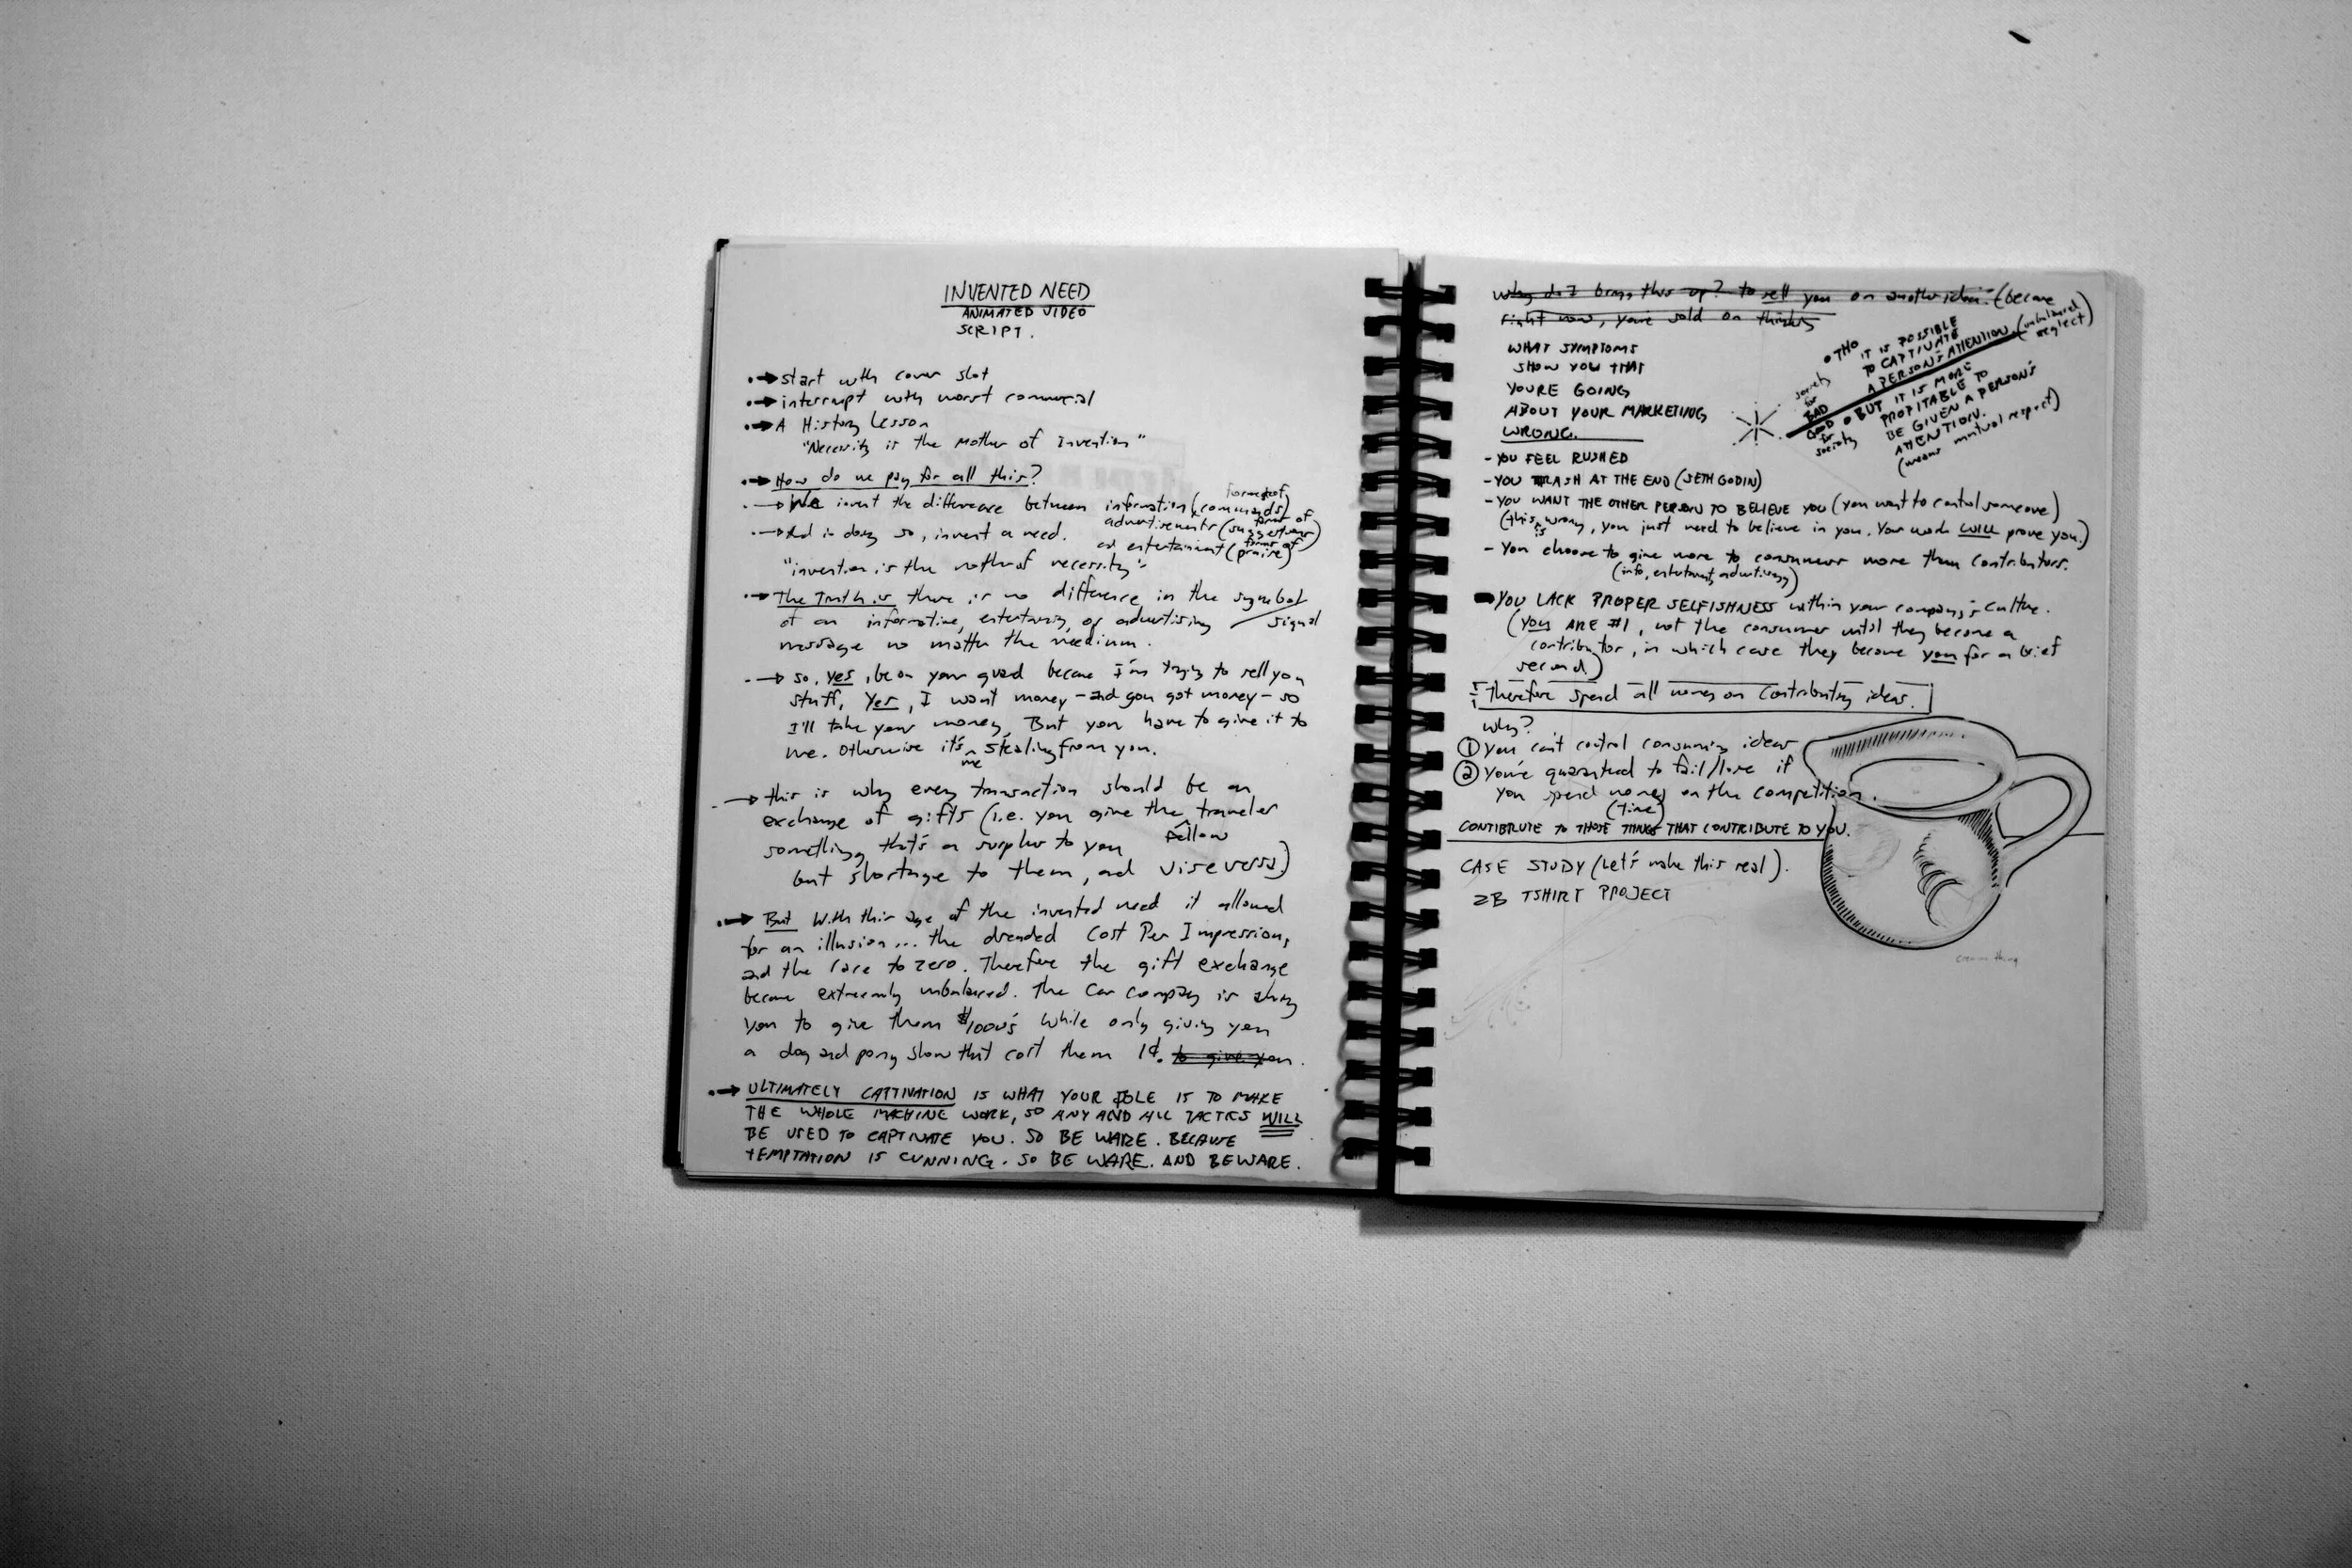 INVENTED NEED
ANIMATED VIDEO
SCRIPT.
start with cover slot
interrupt with worst commercial
A History Lesson
"Necessity is the Mother of Invention"
How do we pay for all this?
We invent the difference between information (form of commands)
advertisements (form of suggestions)
And in doing so, invent a need.
and entertainment (forms of praise)
"invention is the mother of necessity".
The Truth is there is no difference in the symbol
of an informative, entertaining, or advertising / signal
message no matter the medium.
so, yes, be on your guard because I'm trying to sell you
stuff, Yes, I want money - and you got money - so
I'll take your money, But you have to give it to
me. Otherwise it's me stealing from you.
this is why every transaction should be an
exchange of gifts (i.e. you give the fellow traveler
something that's a surplus to you
but shortage to them, and vise versa)
But with this age of the invented need it allowed
for an illusion... the dreaded Cost Per Impression,
and the race to zero. Therefore the gift exchange
became extremely unbalanced. The Car Company is asking
you to give them $1000's while only giving you
a dog and pony show that cost them 1¢. to give you.
ULTIMATELY CAPTIVATION IS WHAT YOUR ROLE IS TO MAKE
THE WHOLE MACHINE WORK, SO ANY AND ALL TACTICS WILL
BE USED TO CAPTIVATE YOU. SO BE WARE. BECAUSE
TEMPTATION IS CUNNING. SO BE WARE. AND BEWARE.
Why do I bring this up? to sell you on another idea. (because
right now, you're sold on
WHAT SYMPTOMS
SHOW YOU THAT
YOU'RE GOING
ABOUT YOUR MARKETING
WRONG.
• THO IT IS POSSIBLE
TO CAPTIVATE
A PERSON'S ATTENTION (unbalanced
neglect)
society
for
BAD
GOOD
for
society
• BUT IT IS MORE
PROFITABLE TO
BE GIVEN A PERSON'S
ATTENTION.
(means mutual respect)
- YOU FEEL RUSHED
- YOU TRASH AT THE END (SETH GODIN)
- YOU WANT THE OTHER PERSON TO BELIEVE YOU (you want to control someone)
(this is wrong, you just need to believe in you. Your work WILL prove you.)
- You choose to give more to consumers more than contributors.
(info, entertainment, advertising)
YOU LACK PROPER SELFISHNESS within your company's culture.
(You ARE #1, not the consumer until they become a
contributor, in which case they become you for a brief
second)
Therefore spend all money on Contributing ideas.
why?
① You can't control consuming ideas
② You're guaranteed to fail/lose if
you spend money on the competition.
(time)
CONTIBRUTE TO THOSE THINGS THAT CONTRIBUTE TO YOU.
CASE STUDY (Let's make this real).
2B TSHIRT PROJECT